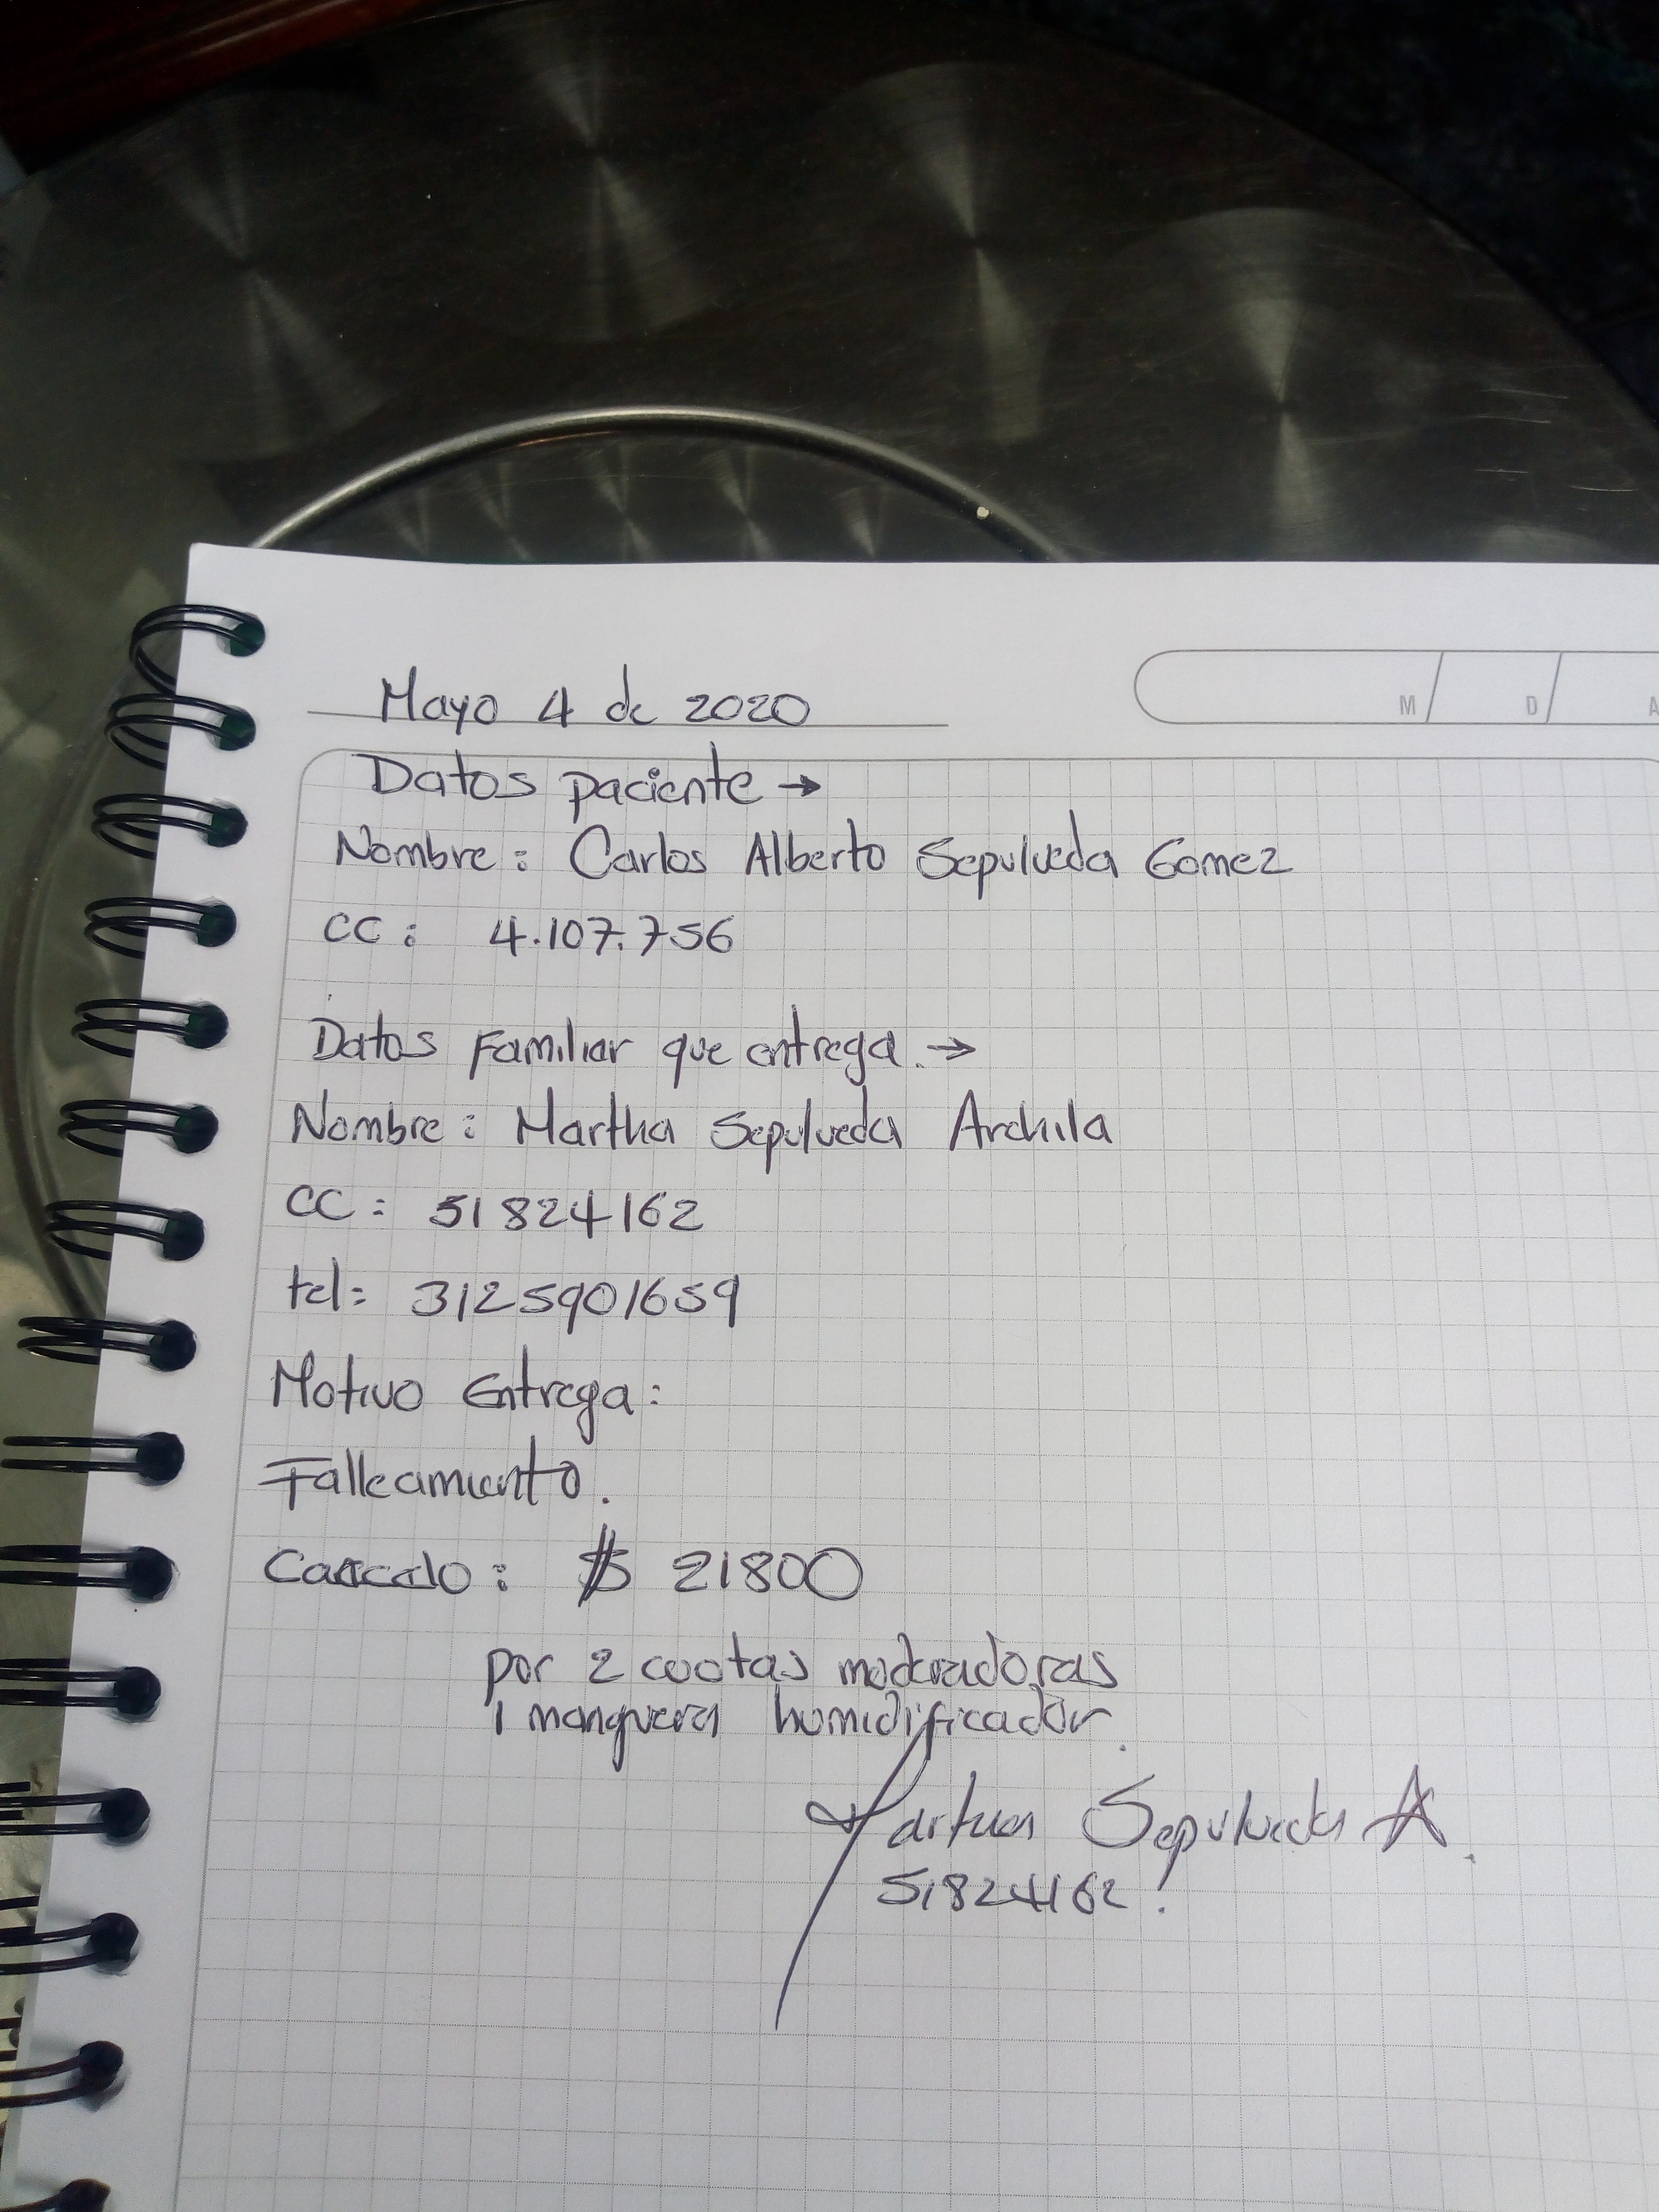 Mayo 4 de 2020
M D A
Datos paciente →
Nombre: Carlos Alberto Sepulveda Gomez
CC: 4.107.756
Datos Familiar que entrega. →
Nombre: Martha Sepulveda Archila
CC: 51824162
tel: 3125901659
Motivo Entrega:
Fallecimiento.
$ 21800
por 2 cuotas moderadoras
1 manguera humidificador.
Martha Sepulveda A.
51824162